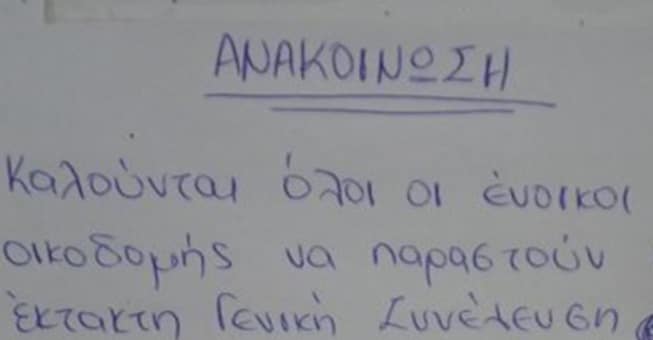 ΑΝΑΚΟΙΝΩΣΗ
Καλούνται όλοι οι ένοικοι
οικοδομής να παραστούν
έκτακτη Γενική Συνέλευση